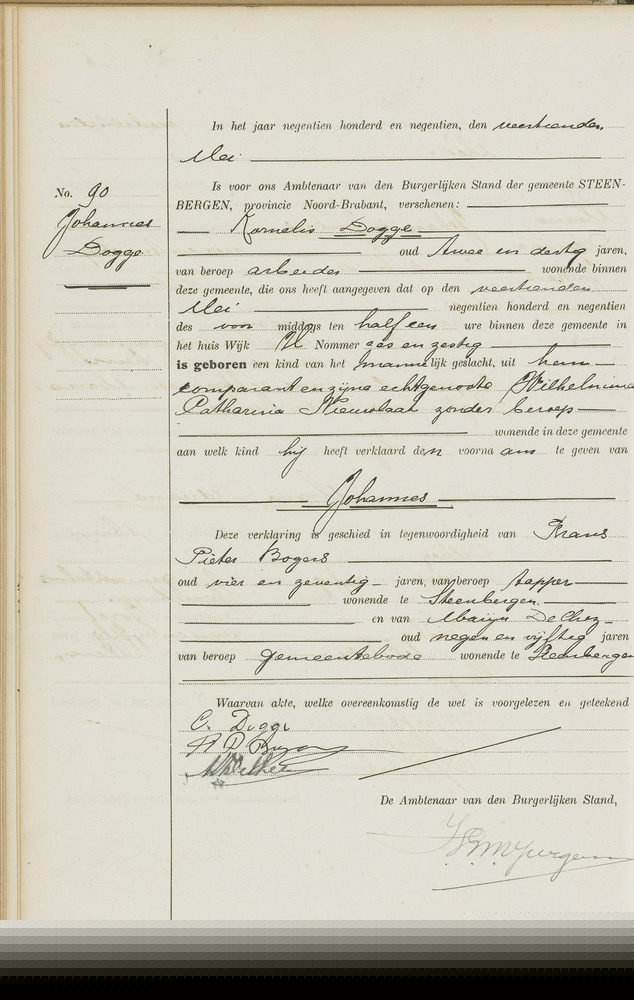 In het jaar negentien honderd en negentien, den veertienden
Mei
No. 90
Johannes
Dogge
Is voor ons Ambtenaar van den Burgerlijken Stand der gemeente STEEN-
BERGEN, provincie Noord-Brabant, verschenen:
Kornelis Dogge
oud twee en dertig jaren,
van beroep arbeider wonende binnen
deze gemeente, die ons heeft aangegeven dat op den veertienden
Mei negentien honderd en negentien
des voor middags ten half een ure binnen deze gemeente in
het huis Wijk Nommer zes en zestig
is geboren een kind van het mannelijk geslacht, uit hem
comparant en zijne echtgenoote Wilhelmina
Catharina Nieuwlaat zonder beroep
wonende in deze gemeente
aan welk kind hij heeft verklaard den voornaam te geven van
Johannes
Deze verklaring is geschied in tegenwoordigheid van Frans
Pieter Bogers
oud vier en zeventig jaren, van beroep tapper
wonende te Steenbergen
en van Marijn
oud negen en vijftig jaren
van beroep gemeentebode wonende te Steenbergen
Waarvan akte, welke overeenkomstig de wet is voorgelezen en geteekend
C. Dogge
De Ambtenaar van den Burgerlijken Stand,